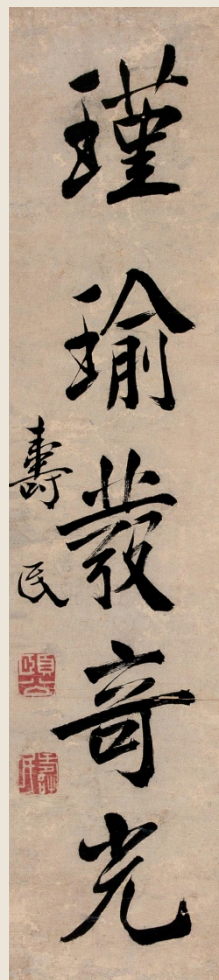 瑾瑜發奇光
壽民